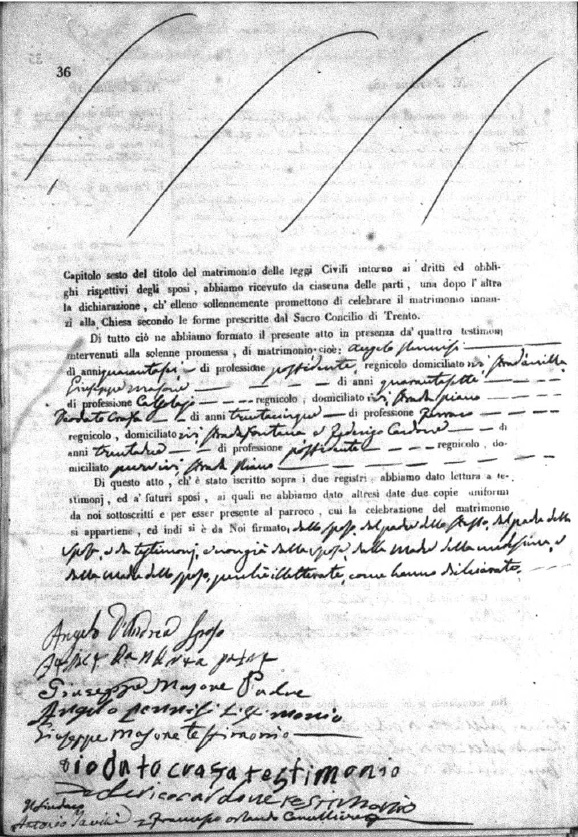 36
Capitolo sesto del titolo del matrimonio delle leggi Civili intorno ai dritti ed obbli-
ghi rispettivi degli sposi, abbiamo ricevuto da ciascuna delle parti, una dopo l'altra
la dichiarazione, ch'elleno sollennemente promettono di celebrare il matrimonio innan-
zi alla Chiesa secondo le forme prescritte dal Sacro Concilio di Trento.
Di tutto ciò ne abbiamo formato il presente atto in presenza da' quattro testimonj
intervenuti alla solenne promessa, di matrimonio-cioè: Angelo Pennisi
di anni quarantasei di professione possidente, regnicolo domiciliato ivi strada
Giuseppe Masone di anni quarantasette
di professione regnicolo, domiciliato ivi strada piano
Diodato Crasa di anni trentacinque di professione
regnicolo, domiciliato ivi strada Fontana e Federigo Cardone di
anni trentadue di professione possidente regnicolo, do-
miciliato pure ivi strada Piano
Di questo atto, ch'è stato iscritto sopra i due registri abbiamo dato lettura a te-
stimonj, ed a' futuri sposi, ai quali ne abbiamo dato altresi date due copie uniformi
da noi sottoscritti e per esser presente al parroco, cui la celebrazione del matrimonio
si appartiene, ed indi si è da Noi firmato, dallo sposo, dal padre dello stesso, dal padre della
sposa, e da testimonj, e non già dalla sposa, dalla madre della medesima, e
dalla madre dello sposo, perchè illetterate, come hanno dichiarato.
Angelo D'Andrea sposo
Dandrea patre
Giuseppe Masone Padre
Angelo Pennisi testimonio
Giuseppe Masone testimonio
Diodato crasa testimonio
Federico cardone testimonio
Il Sindaco
Antonio Francesco Orlando Cancelliere